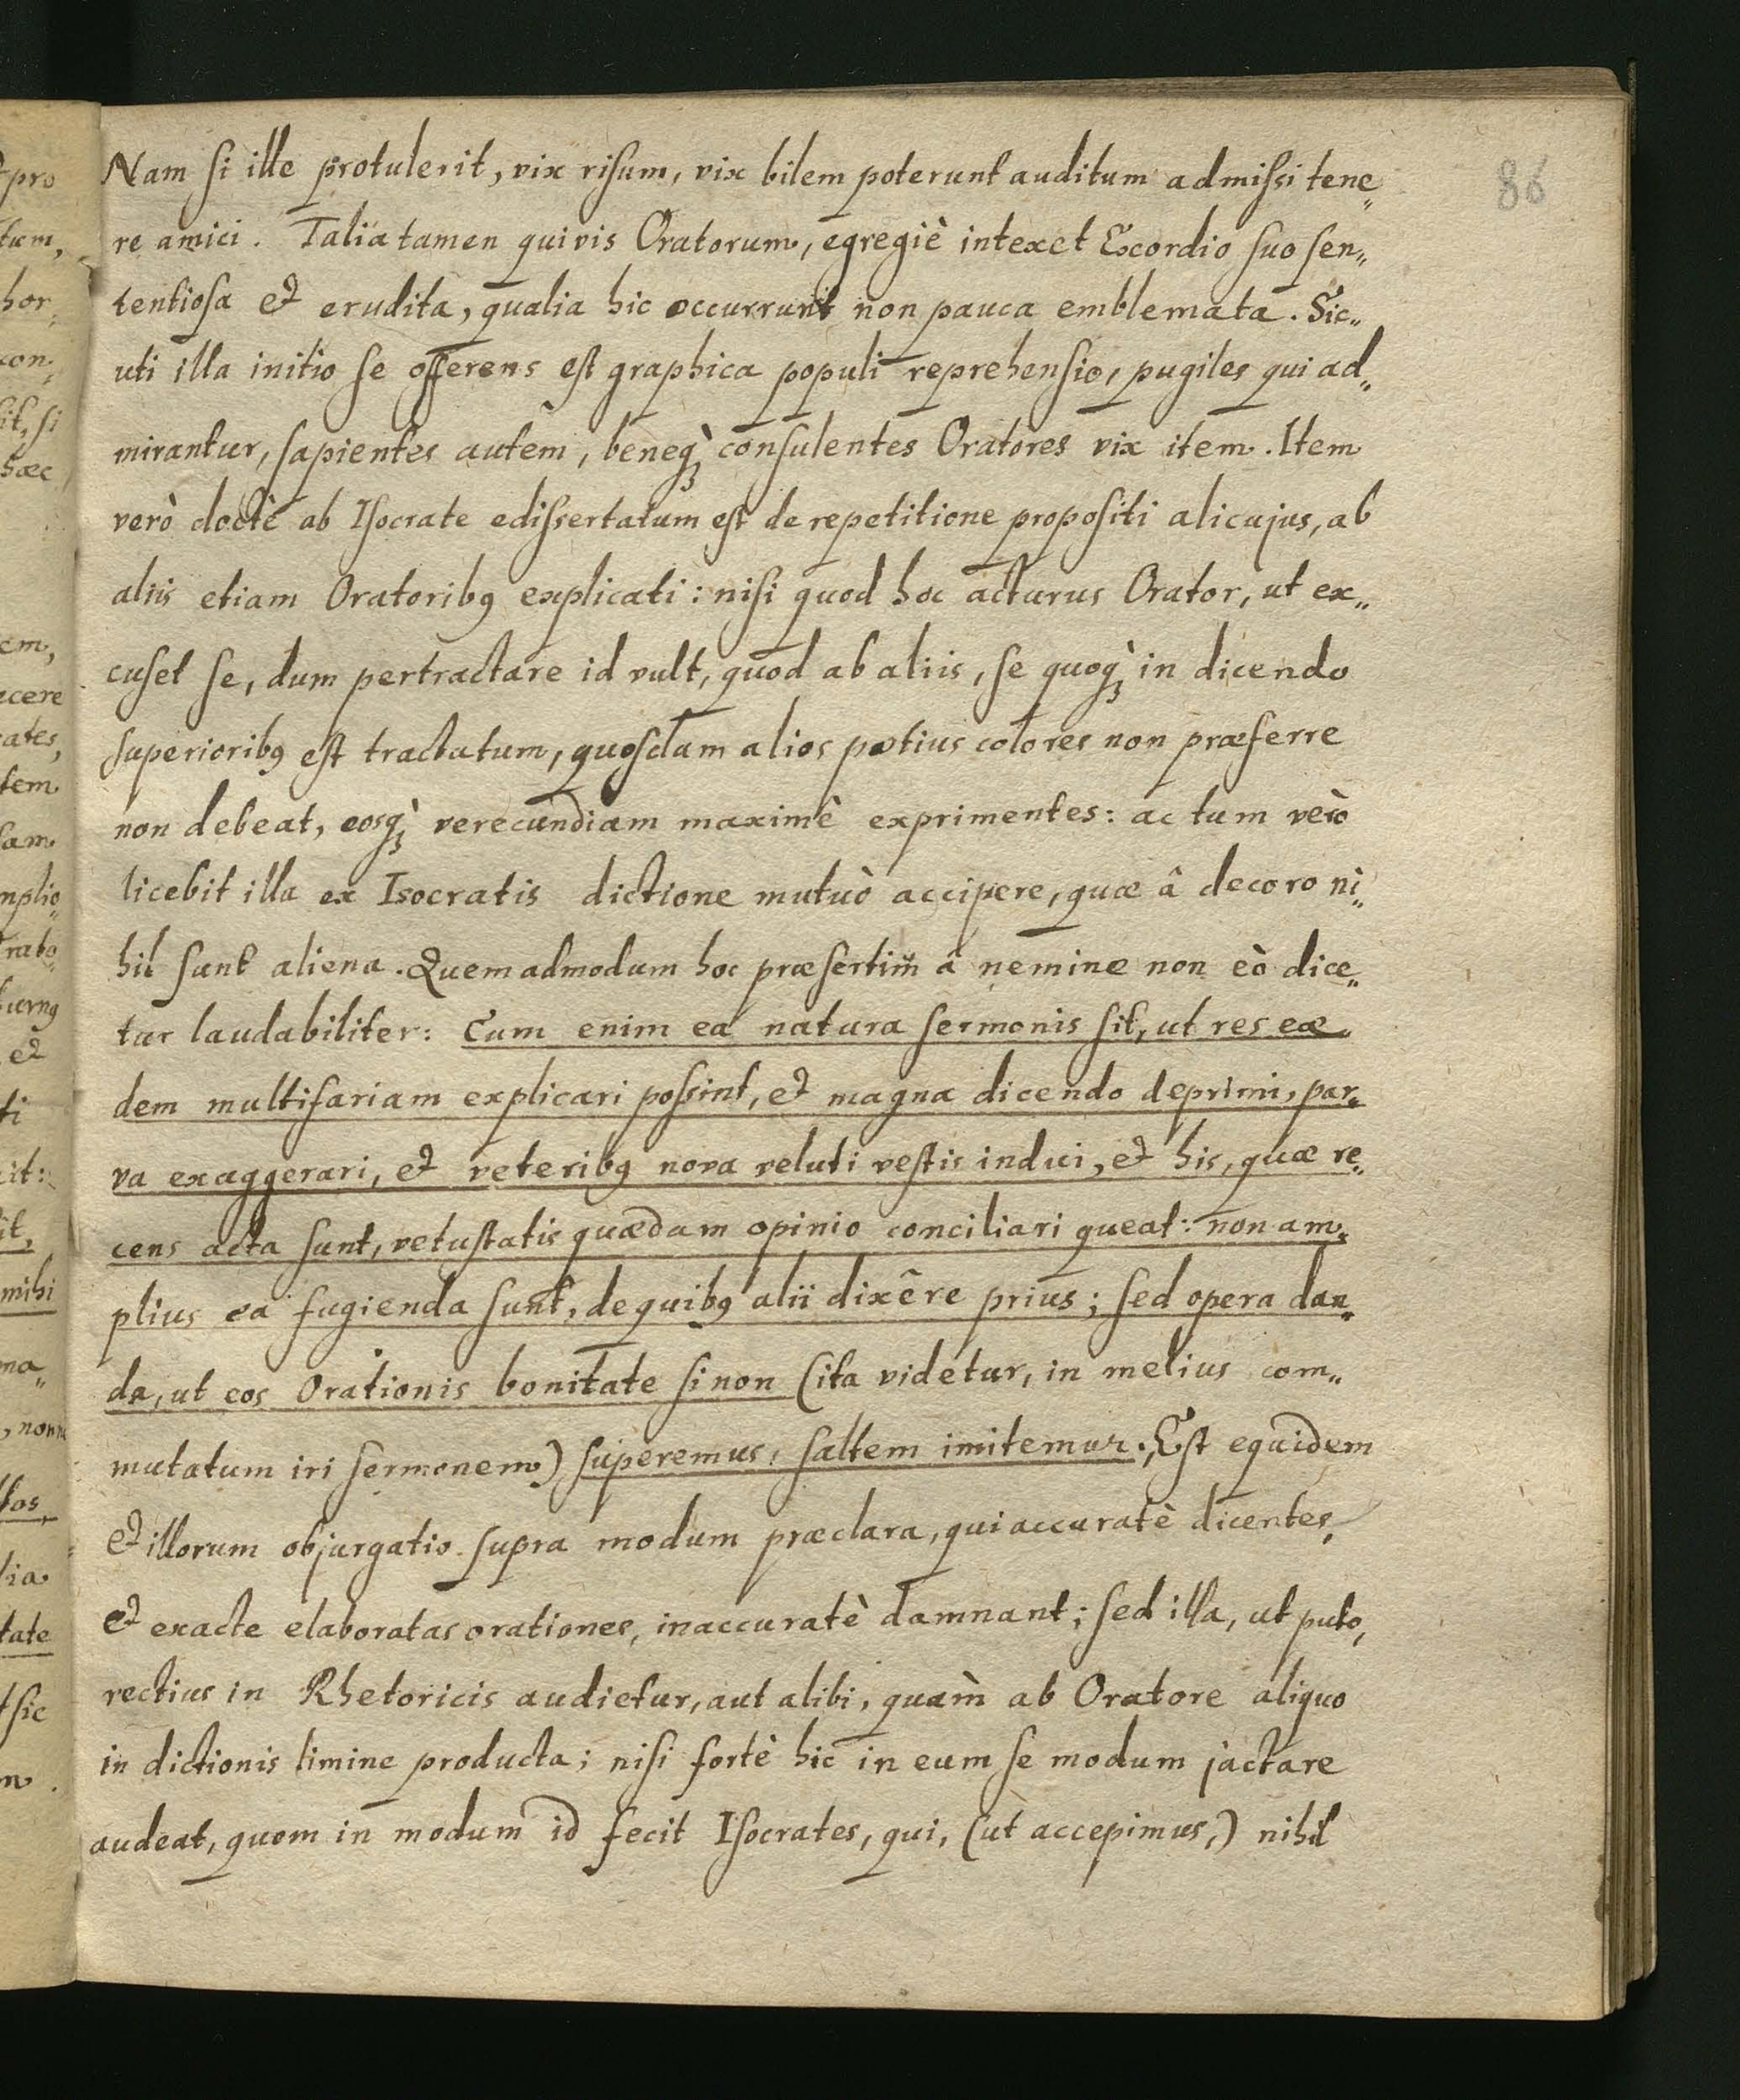 86
Nam si ille protulerit, vix risum, vix bilem poterunt auditum admissi tene„
re amici. Talia tamen quivis Oratorum, egregiè intexet Exordio suo sen„
tentiosa et erudita, qualia hic occurrunt non pauca emblemata. Sic„
uti illa initio se offerens est graphica populi reprehensio, pugiles qui ad„
mirantur, sapientes autem, beneq̀ꝫ consulentes Oratores vix item. Item
verò doctè ab Isocrate edissertatum est de repetitione propositi alicujus, ab
aliis etiam Oratoribꝰ explicati: nisi quod hoc acturus Orator, ut ex„
cuset se, dum pertractare id vult, quod ab aliis, se quoq̀ꝫ in dicendo
superioribꝰ est tractatum, quosdam alios potius colores non præferre
non debeat, eosq̀ꝫ verecundiam maximè exprimentes: ac tum verò
licebit illa ex Isocratis dictione mutuò accipere, quæ â decoro ni„
hil sunt aliena. Quemadmodum hoc præsertim â nemine non eò dice„
tur laudabiliter: Cum enim ea natura sermonis sit, ut res eæ
dem multifariam explicari possint, et magna dicendo deprimi, par„
va exaggerari, et veteribꝰ nova veluti vestis indui, et his, quæ re„
cens acta sunt, vetustatis quædam opinio conciliari queat: non am„
plius ea fugienda sunt, de quibꝰ alii dixêre prius; sed opera dan„
da, ut eos Orationis bonitate si non (ita videtur, in melius com„
mutatum iri sermonem) superemus, saltem imitemur. Est equidem
et illorum objurgatio supra modum præclara, qui accuratè dicentes,
et exacte elaboratas orationes, inaccuratè damnant; sed illa, ut puto,
rectius in Rhetoricis audietur, aut alibi, quàm ab Oratore aliquo
in dictionis limine producta; nisi fortè hic in eum se modum jactare
audeat, quem in modum id fecit Isocrates, qui, (ut accepimus,) nihil